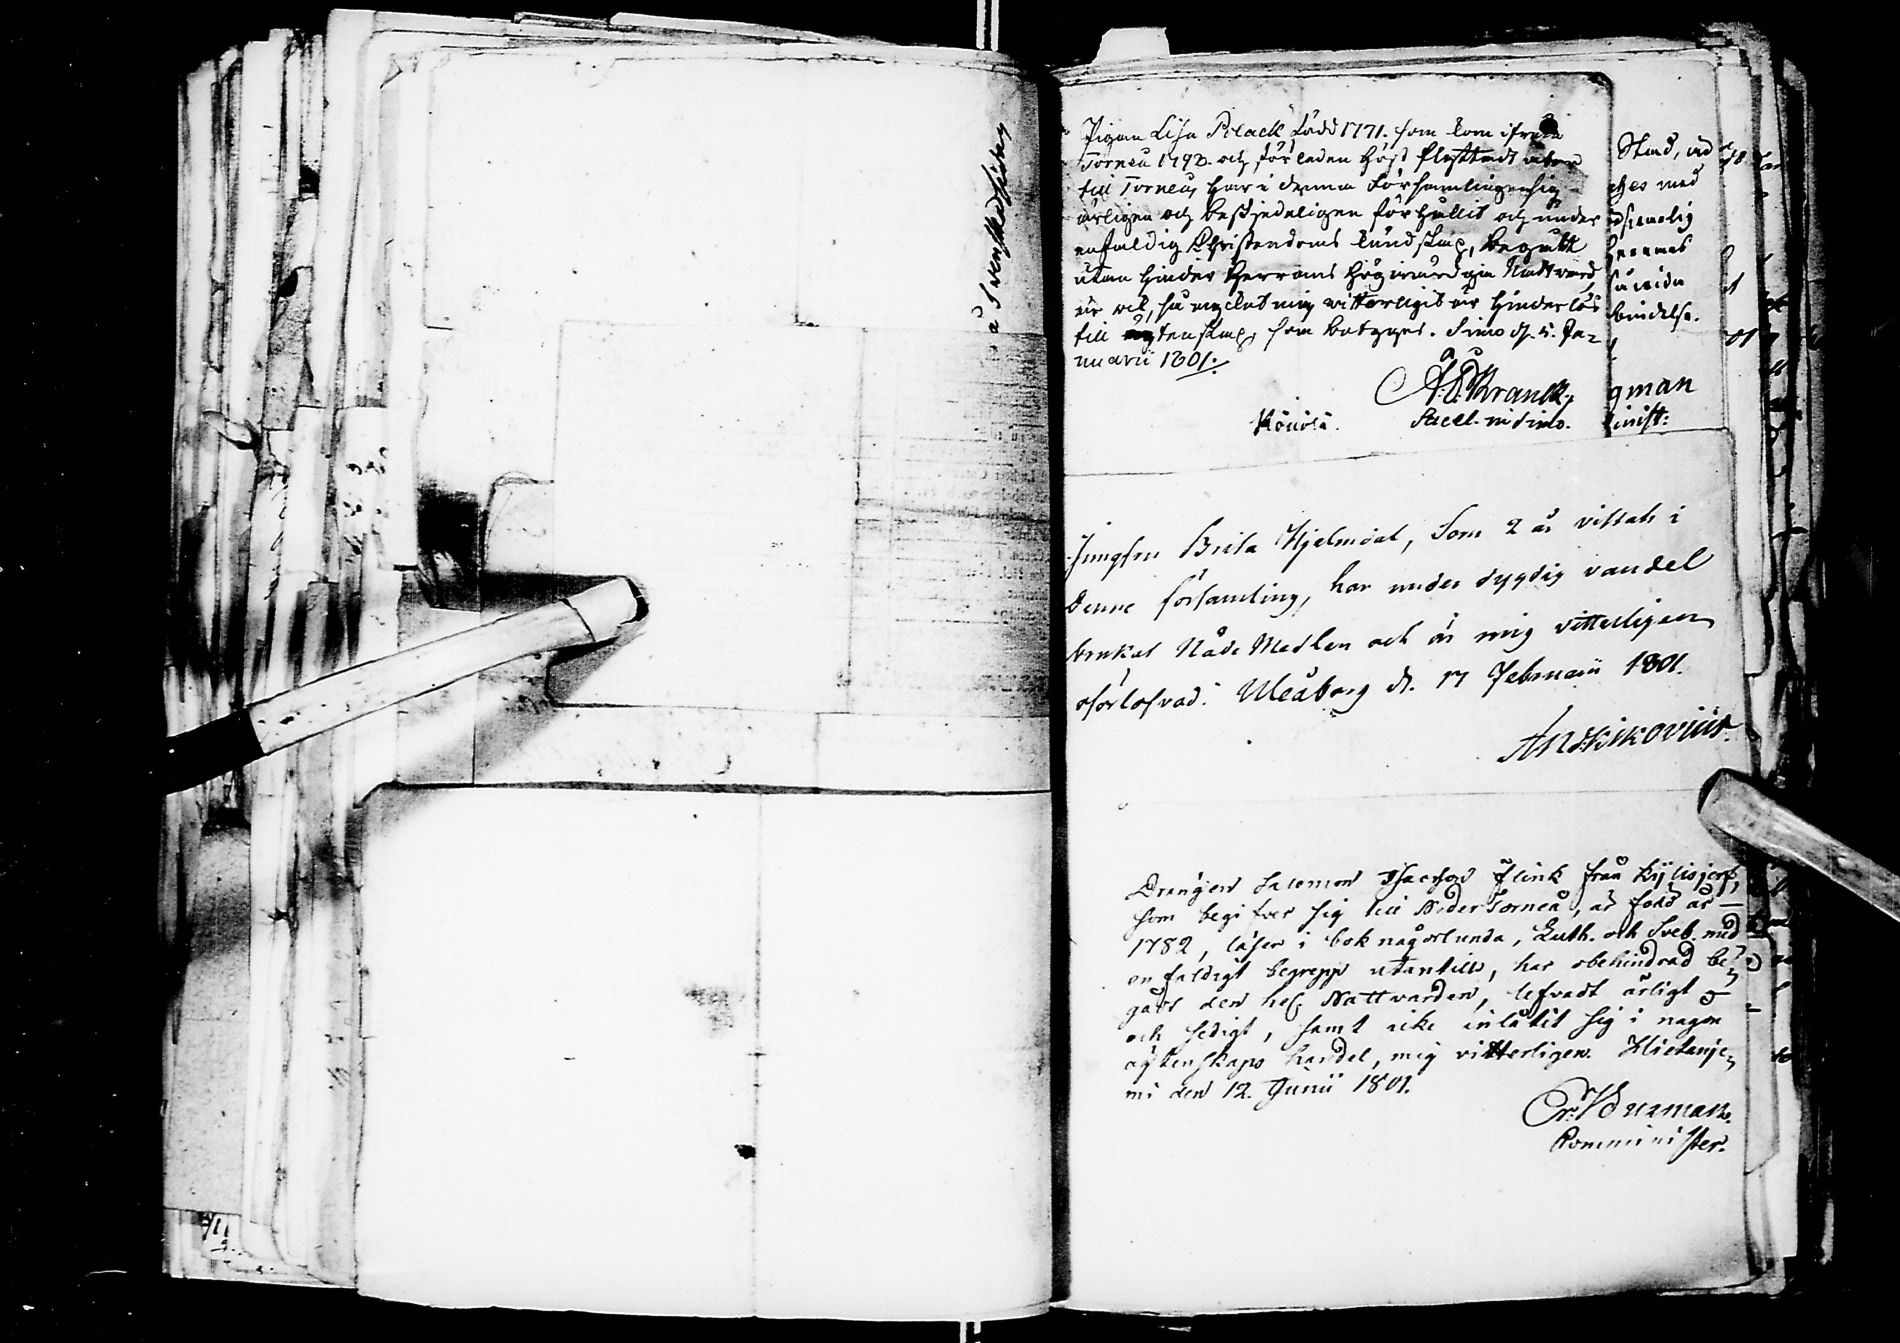 å Svenska
Pigan Lisa Polack född 1771. som kom ifrån
Torneå 1793. och förleden Höst flyttadt åter
till Torneå, har i denna Församlingen sig
ärligen och beskjedeligen förhållit och under
enfaldig Christendoms kundskap, begått
utan hinder Herrans Högvärdiga Nattvard,
är ock, så mycket mig vitterligit är hinderlös
till ägtenskap, som betyges. Simo d. 5. Ja-
nuarii 1801.
Kranck.
Sacell. in Simo.
Stad, vid
med
hennes
qman
inist:
Jungfru Brita Hjelmdal, Som 2 år vistats i
denne församling, har under dygdig vandel
brukat Nåde Medlen och är mig vitterligen
oförlofvad. Uleåborg d. 17 Februarii 1801.
Drängen Salomon Isacson Flink från Kylisjerf,
som begifver sig till Neder Torneå, är född år —
1782, läser i bok någorlunda, Luth. och Sveb. med
enfaldigt begrepp utantill, har obehindrad be-
gådt den hel. Nattvarden, lefvadt ärligt —
och sedigt, samt icke inlåtit sig i någon
ägtenskaps handel, mig vitterligen. Hietanje-
mi den 12. Junii 1801.
Komminister.